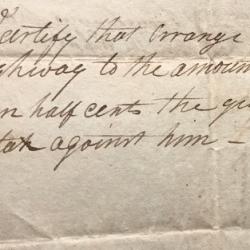 certify that Orange
highway to the amoun
n half cents the
tax against him —